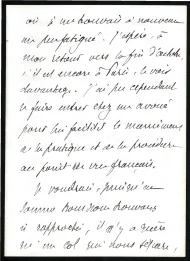 où je me trouvais à nouveau
un peu fatigué. J'espère, à
mon retour vers la fin d'octobre
s'il est encore à Paris, le voir
davantage. J'ai pu cependant
le faire entrer chez un avoué
pour lui faciliter le maniement
de la pratique et de la procédure
au point de vue français.
Je voudrais, puisque
nous
si rapproché, il n'y a guère
qu'un col qui nous sépare,